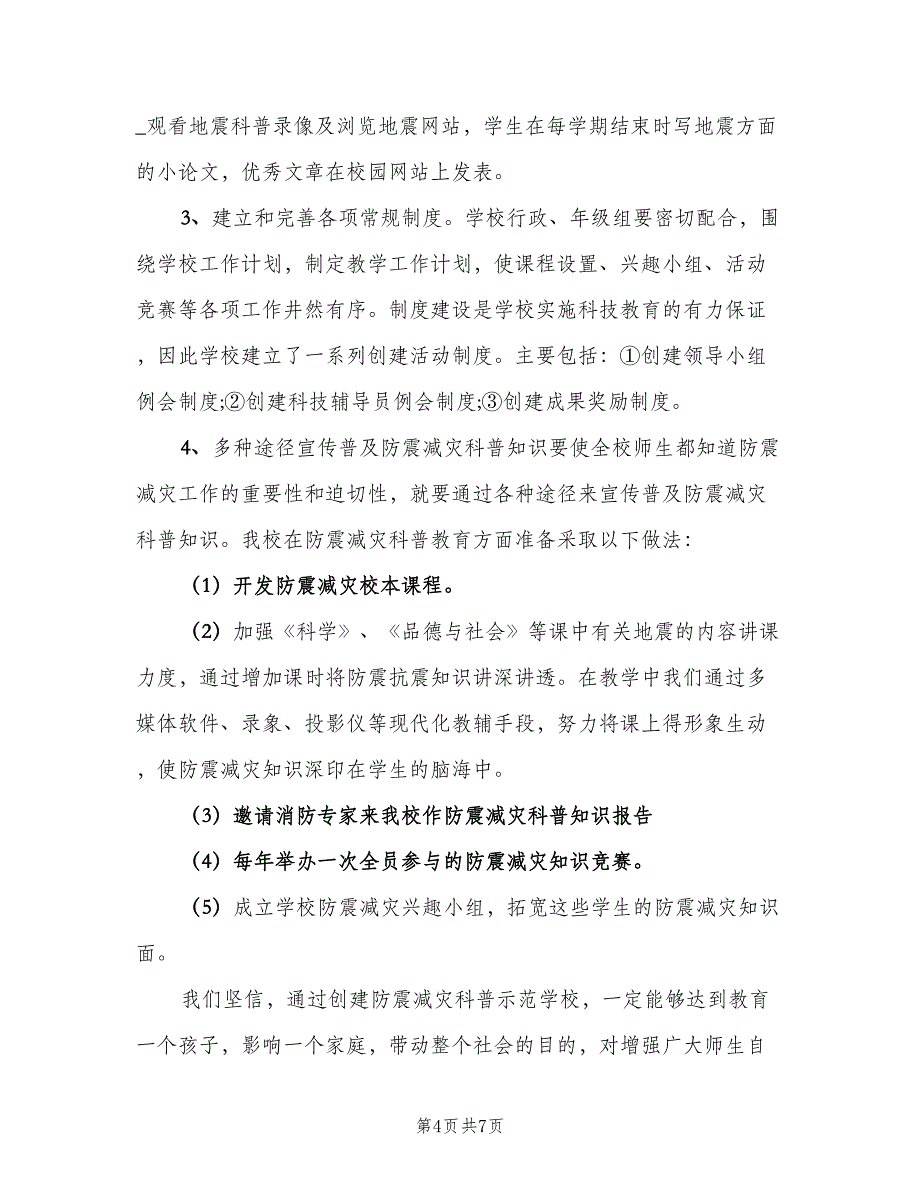 _观看地震科普录像及浏览地震网站，学生在每学期结束时写地震方面
的小论文，优秀文章在校园网站上发表。
3、建立和完善各项常规制度。学校行政、年级组要密切配合，围
绕学校工作计划，制定教学工作计划，使课程设置、兴趣小组、活动
竞赛等各项工作井然有序。制度建设是学校实施科技教育的有力保证
，因此学校建立了一系列创建活动制度。主要包括：①创建领导小组
例会制度;②创建科技辅导员例会制度;③创建成果奖励制度。
4、多种途径宣传普及防震减灾科普知识要使全校师生都知道防震
减灾工作的重要性和迫切性，就要通过各种途径来宣传普及防震减灾
科普知识。我校在防震减灾科普教育方面准备采取以下做法：
（1）开发防震减灾校本课程。
（2）加强《科学》、《品德与社会》等课中有关地震的内容讲课
力度，通过增加课时将防震抗震知识讲深讲透。在教学中我们通过多
媒体软件、录象、投影仪等现代化教辅手段，努力将课上得形象生动
，使防震减灾知识深印在学生的脑海中。
（3）邀请消防专家来我校作防震减灾科普知识报告
（4）每年举办一次全员参与的防震减灾知识竞赛。
（5）成立学校防震减灾兴趣小组，拓宽这些学生的防震减灾知识
面。
我们坚信，通过创建防震减灾科普示范学校，一定能够达到教育
一个孩子，影响一个家庭，带动整个社会的目的，对增强广大师生自
第4页共7页